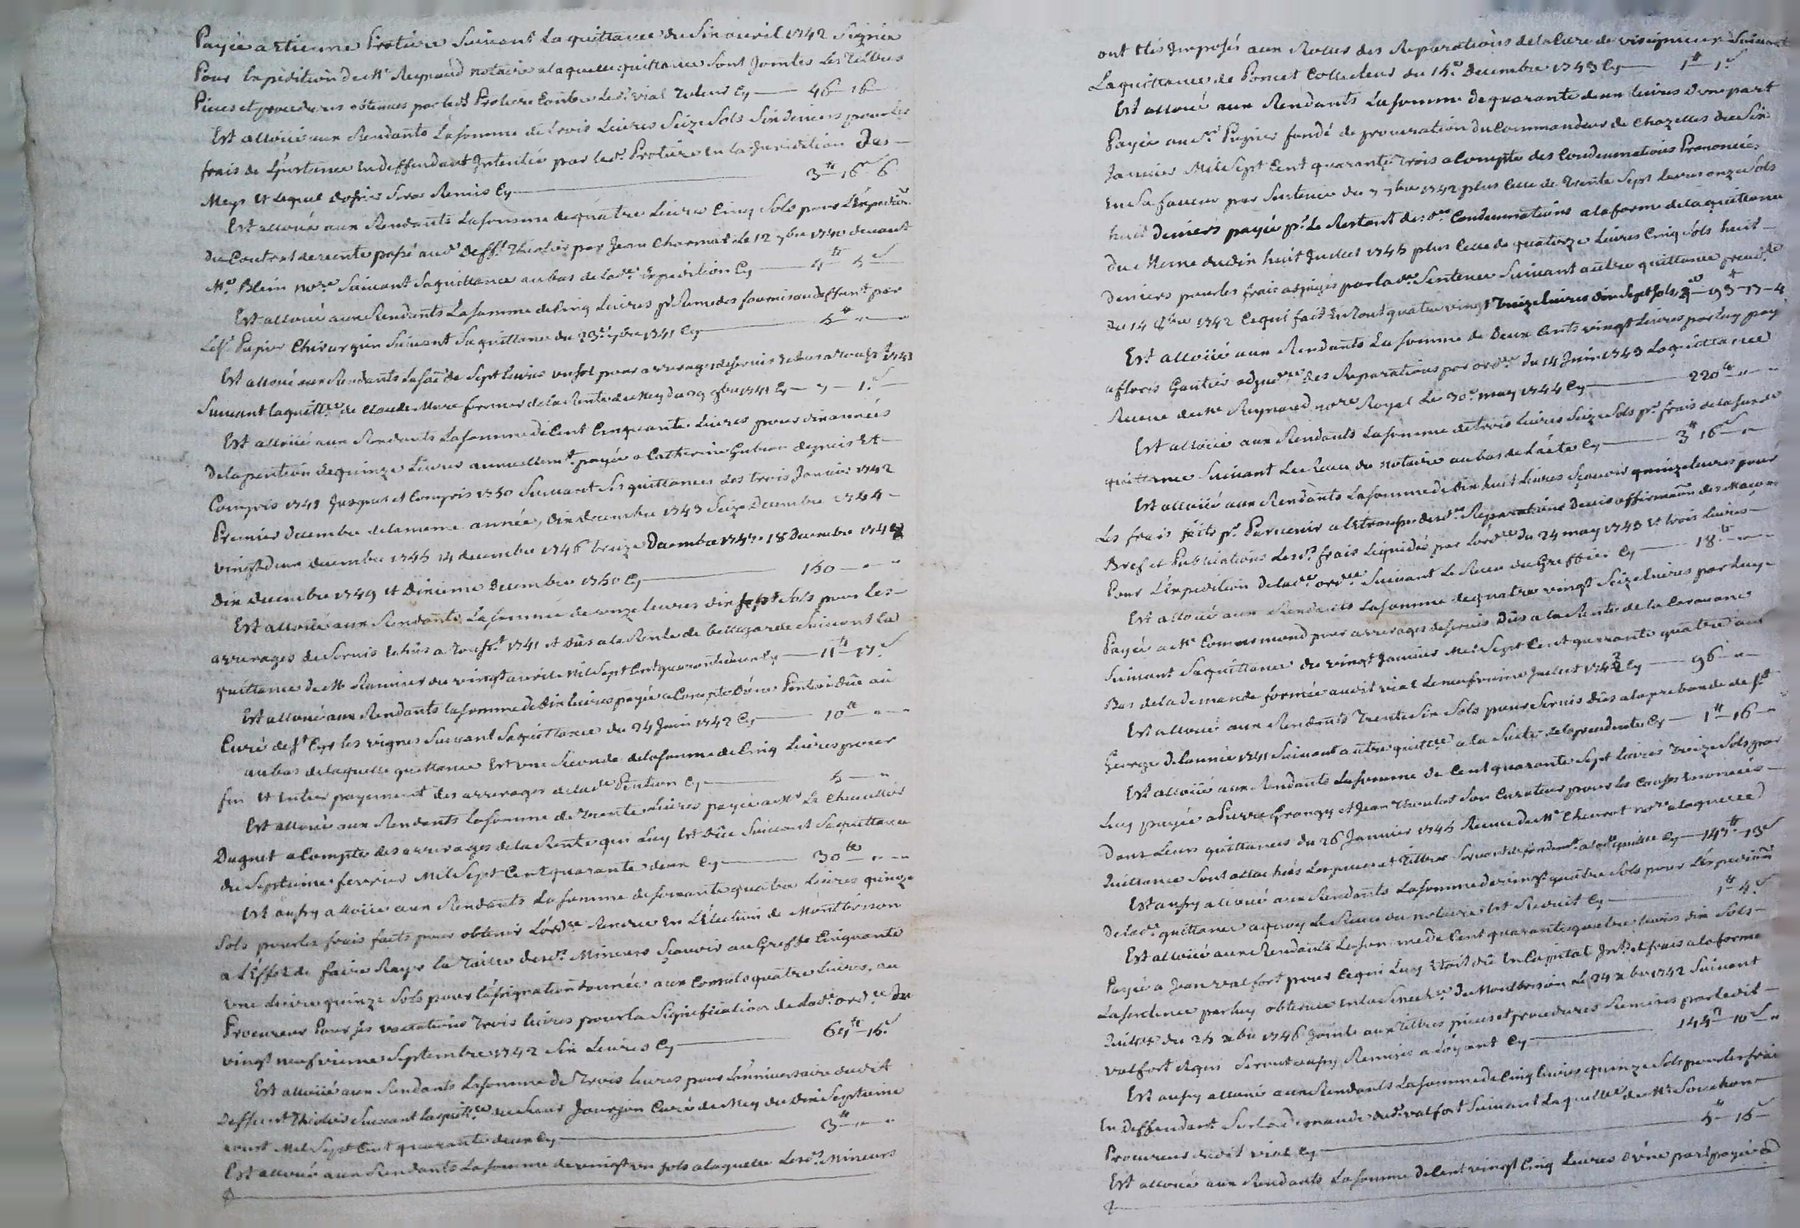 Payée a Etienne Protiere Suivant La quittance du Six avril 1742 Signée
Pour Expedition de Me Reynaud notaire a laquelle quittance Sont Jointes Les Tiltres
Pieces et procedures obtenues par led. Protiere Contre Led. vial Tuteur Cy — 46 — 16 —
Est alloüé aux Rendants La Somme de trois Livres Seize Sols Six deniers pour les
frais de L'instance En deffendant Intentée par led. Protiere En la Juridiction de
Meys et Lequel dossier Sera Remis Cy — 3tt 16s 6
Est alloué aux Rendants La Somme de quatre Livres Cinq Sols pour L'Expedition
du Contrat de vente passé aud. defft Thiolier par Jean Charmet Le 12 7bre 1740 devant
Me Blein nore Suivant Sa quittance au bas de lade Expedition Cy — 4tt 5s
Est alloué aux Rendants La Somme de Cinq Livres pr Remedes fournis au deffunt par
Le Sr Papier Chirurgien Suivant Sa quittance du 23e 7bre 1741 Cy — 5tt
Est alloué aux Rendants La Somme de Sept Livres un sol pour arrerages de servis Echus a la Toussts 1741
Suivant la quittce de Claude More fermier de la Rente de Mey du 29 9bre 1741 Cy — 7 — 1s
Est alloüé aux Rendants La Somme de Cent Cinquante Livres pour dix années
de la pention de quinze Livres annuellemt payée a Catherine Gubian depuis Et
Compris 1741 Jusques et Compris 1750 Suivant Ses quittances des trois Janvier 1742
Premier decembre de la meme année, dix decembre 1743 Seize decembre 1744
vingt deux decembre 1745 14 decembre 1746 treize Decembre 1747 18 Decembre 1748
dix decembre 1749 et dixieme decembre 1750 Cy — 150
Est alloüé aux Rendants La Somme de onze livres dix sept Sols pour Les
arrerages de Servis Echus a Toussts 1741 et dûs a la Rente de bellegarde Suivant La
quittance de Mr Ramier du vingt avril Mil Sept Cent quarante deux Cy — 11tt 17s
Est alloué aux Rendants la Somme de dix livres payée a Compte d'une Pention düe au
Curé de St Cyr les vignes Suivant Sa quittance du 24 Juin 1742 Cy — 10tt
au bas de laquelle quittance Est une Seconde de la Somme de Cinq Livres pour
fin Et Entier payement des arrerages de lade Pention Cy — 5
Est alloué aux Rendants La Somme de trente Livres payée a Mr Le Chevallier
Duguet a Compte des arrerages de la Rente qui Luy Est Düe Suivant Sa quittance
du Septieme fevrier Mil Sept Cent quarante deux Cy — 30tt
Est aussy alloüé aux Rendants La Somme de soixante quatre Livres quinze
Sols pour les frais faits pour obtenir L'ordce Rendue En L'Election de Montbrison
a L'Effet de faire Rayer la Taille desds Mineurs Sçavoir au Greffe Cinquante
une Livre quinze Sols pour l'assignation donnée aux Consuls quatre Livres, au
Procureur Pour ses vacations Trois livres pour la Signification de lade ordce du
vingt neufvieme Septembre 1742 Six Livres Cy — 64tt 15s
Est alloüé aux Rendants La Somme de Trois livres pour L'anniversaire dudit
Deffunt Thiolier Suivant la quittce du Sieur Jourjon Curé de Mey du Dix Septieme
aoust Mil Sept Cent quarante deux Cy — 3tt
Est alloué aux Rendants La Somme de vingt un sols a laquelle Lesds Mineurs
ont été Imposés aux Rolles des Reparations de la Cure de Suivant
La quittance de Poncet Collecteur du 15e decembre 1743 Cy — 1tt 1s
Est alloué aux Rendants La Somme de quarante deux livres d'une part
Payée au Sr Papier fondé de procuration du Commandeur de Chazelles du Six
Janvier Mil Sept Cent quarante Trois a Compte des Condemnations Prononcées
En Sa faveur par Sentence du 7 7bre 1742 plus Celle de Trente Sept livres onze Sols
huit deniers payée pr Le Restant desdes Condemnations a la forme de la quittance
du Meme du dix huit Juillet 1745 plus Celle de quatorze Livres Cinq Sols huit
deniers pour les frais adjugés par lade Sentence Suivant autre quittance
du 14 8bre 1742 Ce qui fait En Tout quatre vingt treize livres dix Sept Sols 4 d — 93tt — 17 — 4
Est alloüé aux Rendants La Somme de Deux Cents vingt Livres par luy payée
a floris Gautier adjudre des Reparations par ordce du 14 Juin 1743 La quittance
Recue de Me Reynaud nore Royal Le 30e may 1744 Cy — 220tt
Est alloüé aux Rendants La Somme de trois Livres Seize Sols pr frais de la susde
quittance Suivant Le Recu du notaire au bas de L'acte Cy — 3tt 16s
Est alloüé aux Rendants La Somme de dix huit Livres Sçavoir quinze livres pour
Les frais faits pr Parvenir a desdes Reparations Devis affirmaon des Maçons
Bref et Publications Lesds frais Liquidés par Lordce du 24 may 1743 Et trois livres
Pour L'Expedition de lade ordce Suivant Le Recu du Greffier Cy — 18
Est alloué aux Rendants La Somme de quatre vingt Seize Livres par Luy
Payée a Mr Commarmond pour arrerages de servis Dûs a la Rente de la
Suivant Sa quittance du vingt Janvier Mil Sept Cent quarante quatre au
Bas de la Demande formée audit vial Le neufvieme Juillet 1742 Cy — 96
Est alloué aux Rendants Trente Six Sols pour Servis dûs a la prebande de St
George de L'année 1741 Suivant autre quittce a la Suite de la precedente Cy — 1tt 16
Est alloüé aux Rendants La Somme de Cent quarante Sept Livres Treize Sols par
Luy payée a Pierre Grangy et Jean Thoulot Son Curateur pour les Causes Enoncées
Dans Leurs quittances du 26 Janvier 1745 Recue de Me Clement nore a laquelle
quittance Sont attachées Les pieces et Tiltres Cy — 147tt 13s
Est aussy alloué aux Rendants La Somme de vingt quatre Sols pour L'Expedition
de lade quittance a quoy Le Recu du notaire Est Reduit Cy — 1tt 4s
Est alloüé aux Rendants La Somme de Cent quarante quatre livres dix Sols
Payée a Jean valfort pour Ce qui Luy Etoit dû En Capital Int. et frais a la forme
La Sentence par luy obtenue En la Senechée de Montbrison Le 24 xbre 1742 Suivant
Quittce du 24 xbre 1746 Jointe aux Tiltres pieces et procedures Remises par ledit
valfort Et qui Seront aussy Remises a L'oyant Cy — 144tt 10s
Est aussy alloué aux Rendants La Somme de Cinq livres quinze Sols pour les frais
En Deffendant Sur la demande dud. valfort Suivant La quittce de Me Souchon
Procureur dudit vial Cy — 5tt 15
Est alloué aux Rendants La Somme de Cent vingt Cinq Livres d'une part payée a